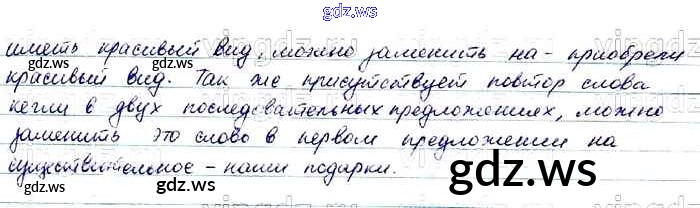 gdz.ws
иметь красивый вид, можно заменить на - приобрели
красивый вид. Так же присутствует повтор слова
кегли в двух последовательных предложениях, можно
заменить это слово в первом предложении на
существительное - наши подарки.
gdz.ws gdz.ws gdz.ws